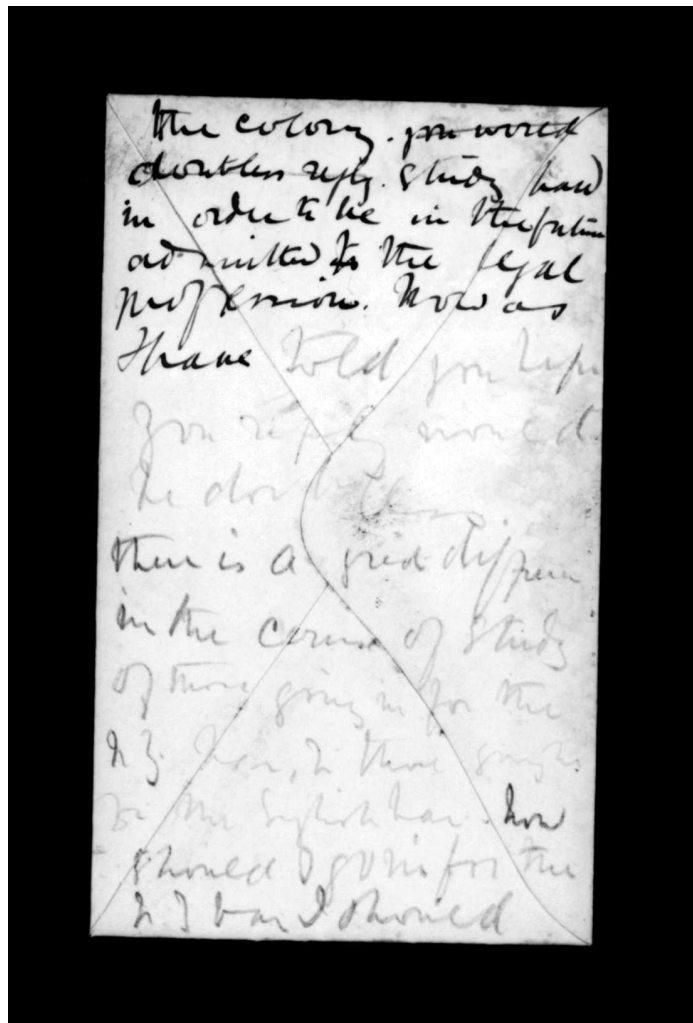 the colony. you would
doubtless reply. Study hard
in order to be in the future
admitted to the legal
profession. Now as
I have told you
you reply would
be doubtless
there is a great differen
in the course of Study
of those going in for the
N Z bar, to those going in
for the English bar. Now
should I go in for the
N Z bar I should